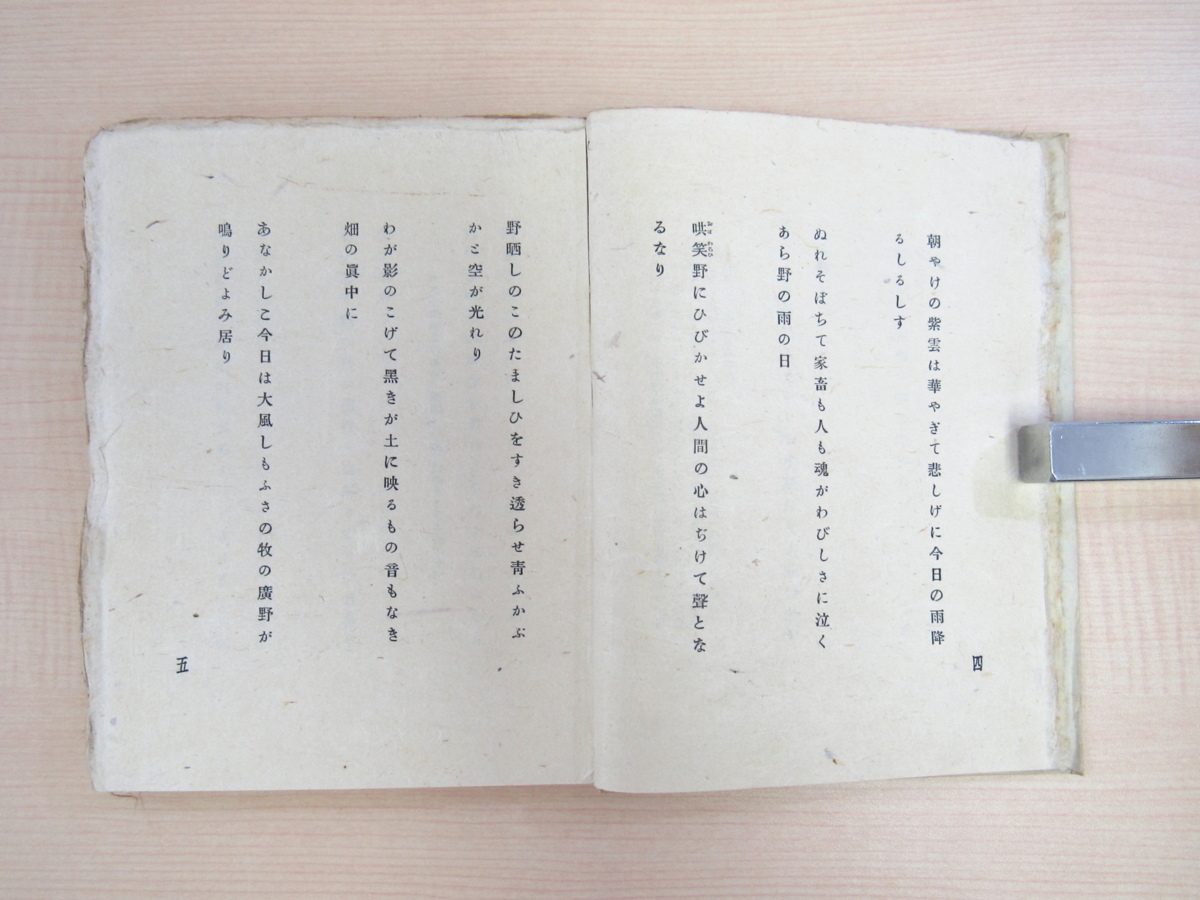 朝やけの紫雲は華やぎて悲しげに今日の雨降
るしるしす
ぬれそぼちて家畜も人も魂がわびしさに泣く
あら野の雨の日
哄笑野にひびかせよ人間の心はぢけて聲とな
るなり
四
野晒しのこのたましひをすき透らせ靑ふかぶ
かと空が光れり
わが影のこげて黑きが土に映るもの音もなき
畑の眞中に
あなかしこ今日は大風しもふさの牧の廣野が
鳴りどよみ居り
五